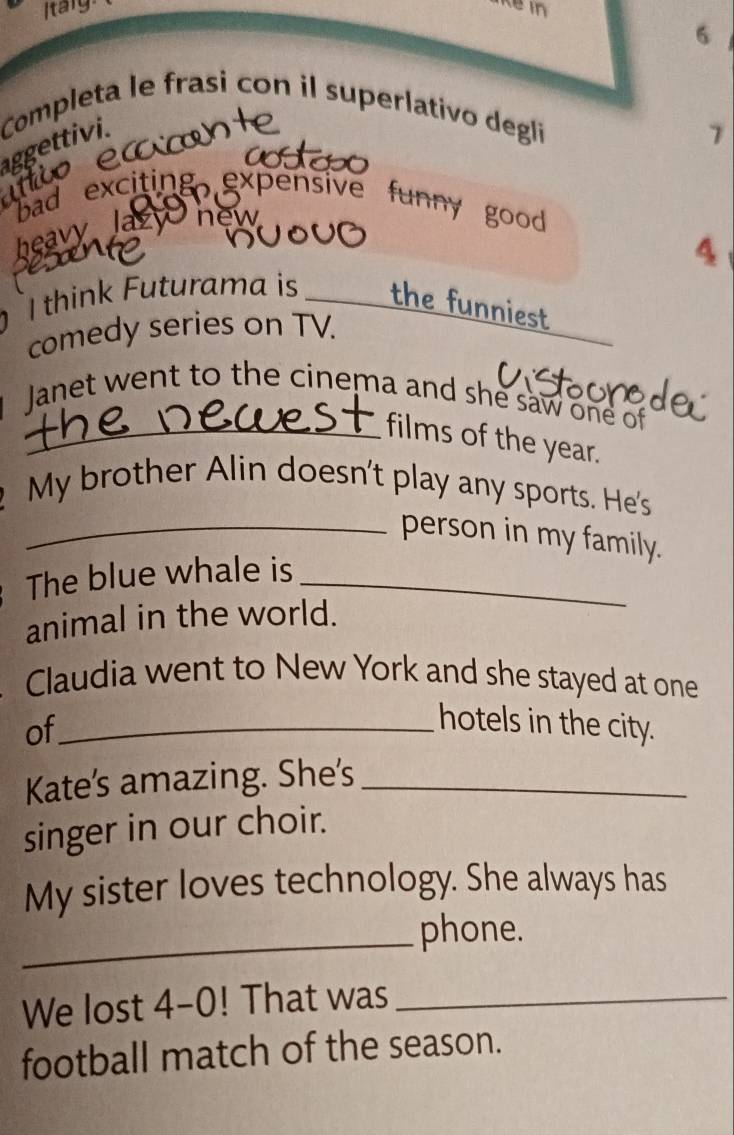 Italy.
ke in
6
Completa le frasi con il superlativo degli
aggettivi.
7
costoso
bad exciting expensive funny good
pigro
heavy lazy new
nuovo
pesante
4
I think Futurama is the funniest
comedy series on TV.
Janet went to the cinema and she saw one of
the newest films of the year.
My brother Alin doesn't play any sports. He's
person in my family.
The blue whale is
animal in the world.
Claudia went to New York and she stayed at one
of hotels in the city.
Kate's amazing. She's
singer in our choir.
My sister loves technology. She always has
phone.
We lost 4–0! That was
football match of the season.